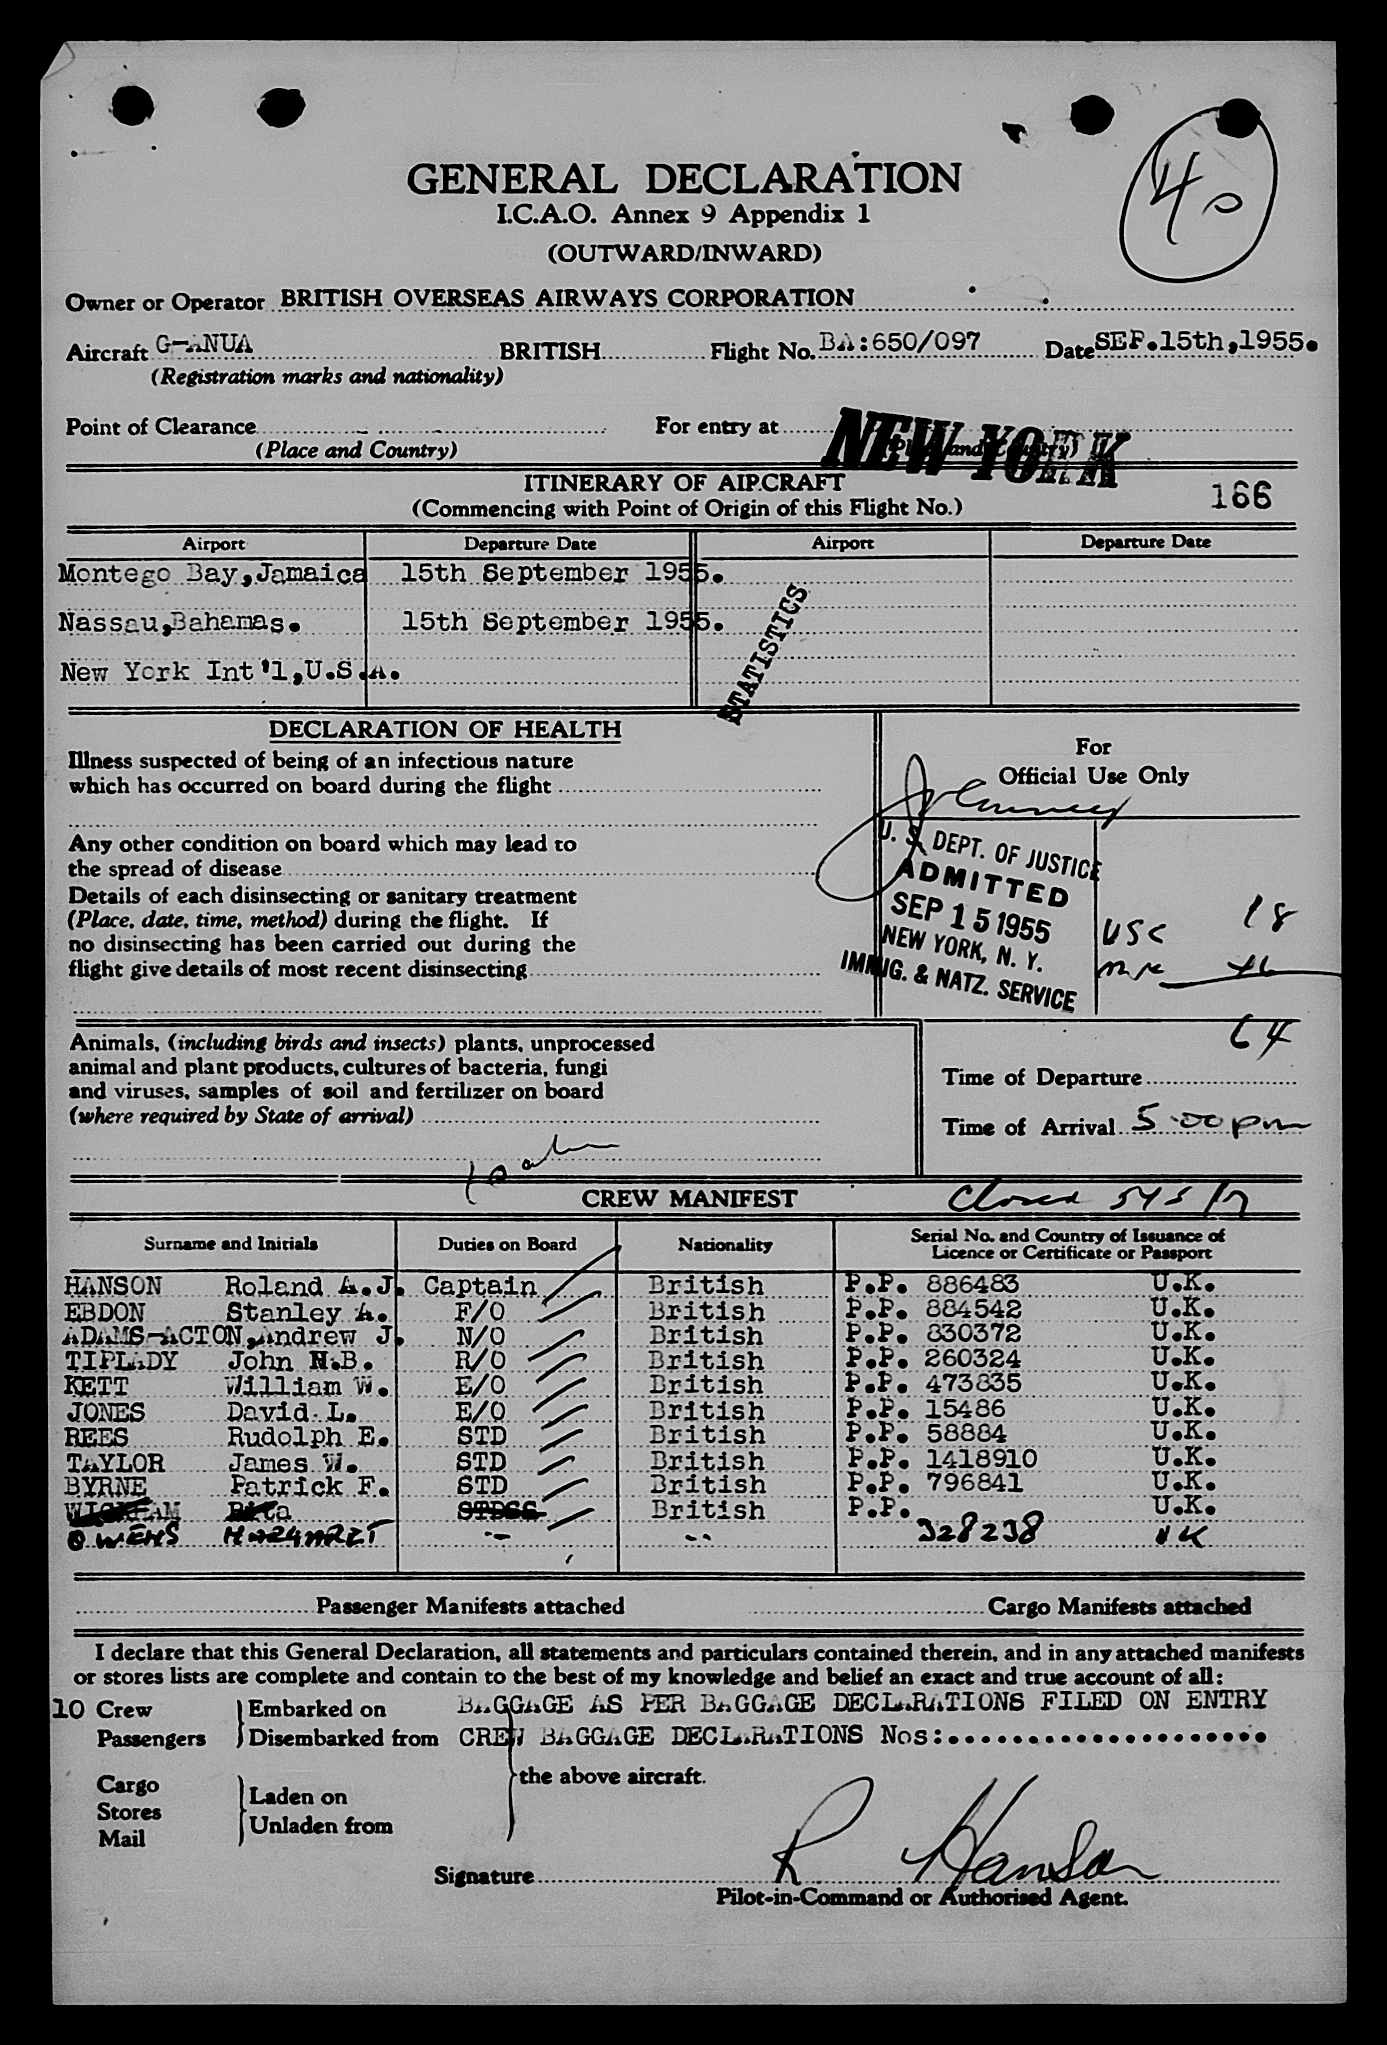 40
GENERAL DECLARATION
I.C.A.O. Annex 9 Appendix 1
(OUTWARD/INWARD)
Owner or Operator BRITISH OVERSEAS AIRWAYS CORPORATION
Aircraft G-ANUA BRITISH Flight No. BA:650/097 Date SEP.15th,1955.
(Registration marks and nationality)
Point of Clearance For entry at NEW YORK
(Place and Country) (Place and Country)
ITINERARY OF AIRCRAFT
(Commencing with Point of Origin of this Flight No.) 166
Airport Departure Date Airport Departure Date
Montego Bay,Jamaica 15th September 1955.
Nassau,Bahamas. 15th September 1955.
New York Int'l,U.S.A.
STATISTICS
DECLARATION OF HEALTH
Illness suspected of being of an infectious nature
which has occurred on board during the flight
Any other condition on board which may lead to
the spread of disease
Details of each disinsecting or sanitary treatment
(Place, date, time, method) during the flight. If
no disinsecting has been carried out during the
flight give details of most recent disinsecting
For
Official Use Only
U. S. DEPT. OF JUSTICE
ADMITTED
SEP 15 1955
NEW YORK, N. Y.
IMMIG. & NATZ. SERVICE
USC 18
64
Animals, (including birds and insects) plants, unprocessed
animal and plant products, cultures of bacteria, fungi
and viruses, samples of soil and fertilizer on board
(where required by State of arrival)
Time of Departure
Time of Arrival 5.00 pm
CREW MANIFEST Closed 545 
Surname and Initials Duties on Board Nationality Serial No. and Country of Issuance of
Licence or Certificate or Passport
HANSON Roland A.J. Captain British P.P. 886483 U.K.
EBDON Stanley A. F/O British P.P. 884542 U.K.
ADAMS-ACTON,Andrew J. N/O British P.P. 830372 U.K.
TIPLADY John N.B. R/O British P.P. 260324 U.K.
KETT William W. E/O British P.P. 473835 U.K.
JONES David L. E/O British P.P. 15486 U.K.
REES Rudolph E. STD British P.P. 58884 U.K.
TAYLOR James W. STD British P.P. 1418910 U.K.
BYRNE Patrick F. STD British P.P. 796841 U.K.
WICKHAM Rita STDSS British P.P. U.K.
OWENS MARGARET -- -- 328238 UK
Passenger Manifests attached Cargo Manifests attached
I declare that this General Declaration, all statements and particulars contained therein, and in any attached manifests
or stores lists are complete and contain to the best of my knowledge and belief an exact and true account of all:
10 Crew Embarked on BAGGAGE AS PER BAGGAGE DECLARATIONS FILED ON ENTRY
Passengers Disembarked from CREW BAGGAGE DECLARATIONS Nos:....................
the above aircraft.
Cargo Laden on
Stores
Unladen from
Mail
Signature R Hanson
Pilot-in-Command or Authorised Agent.